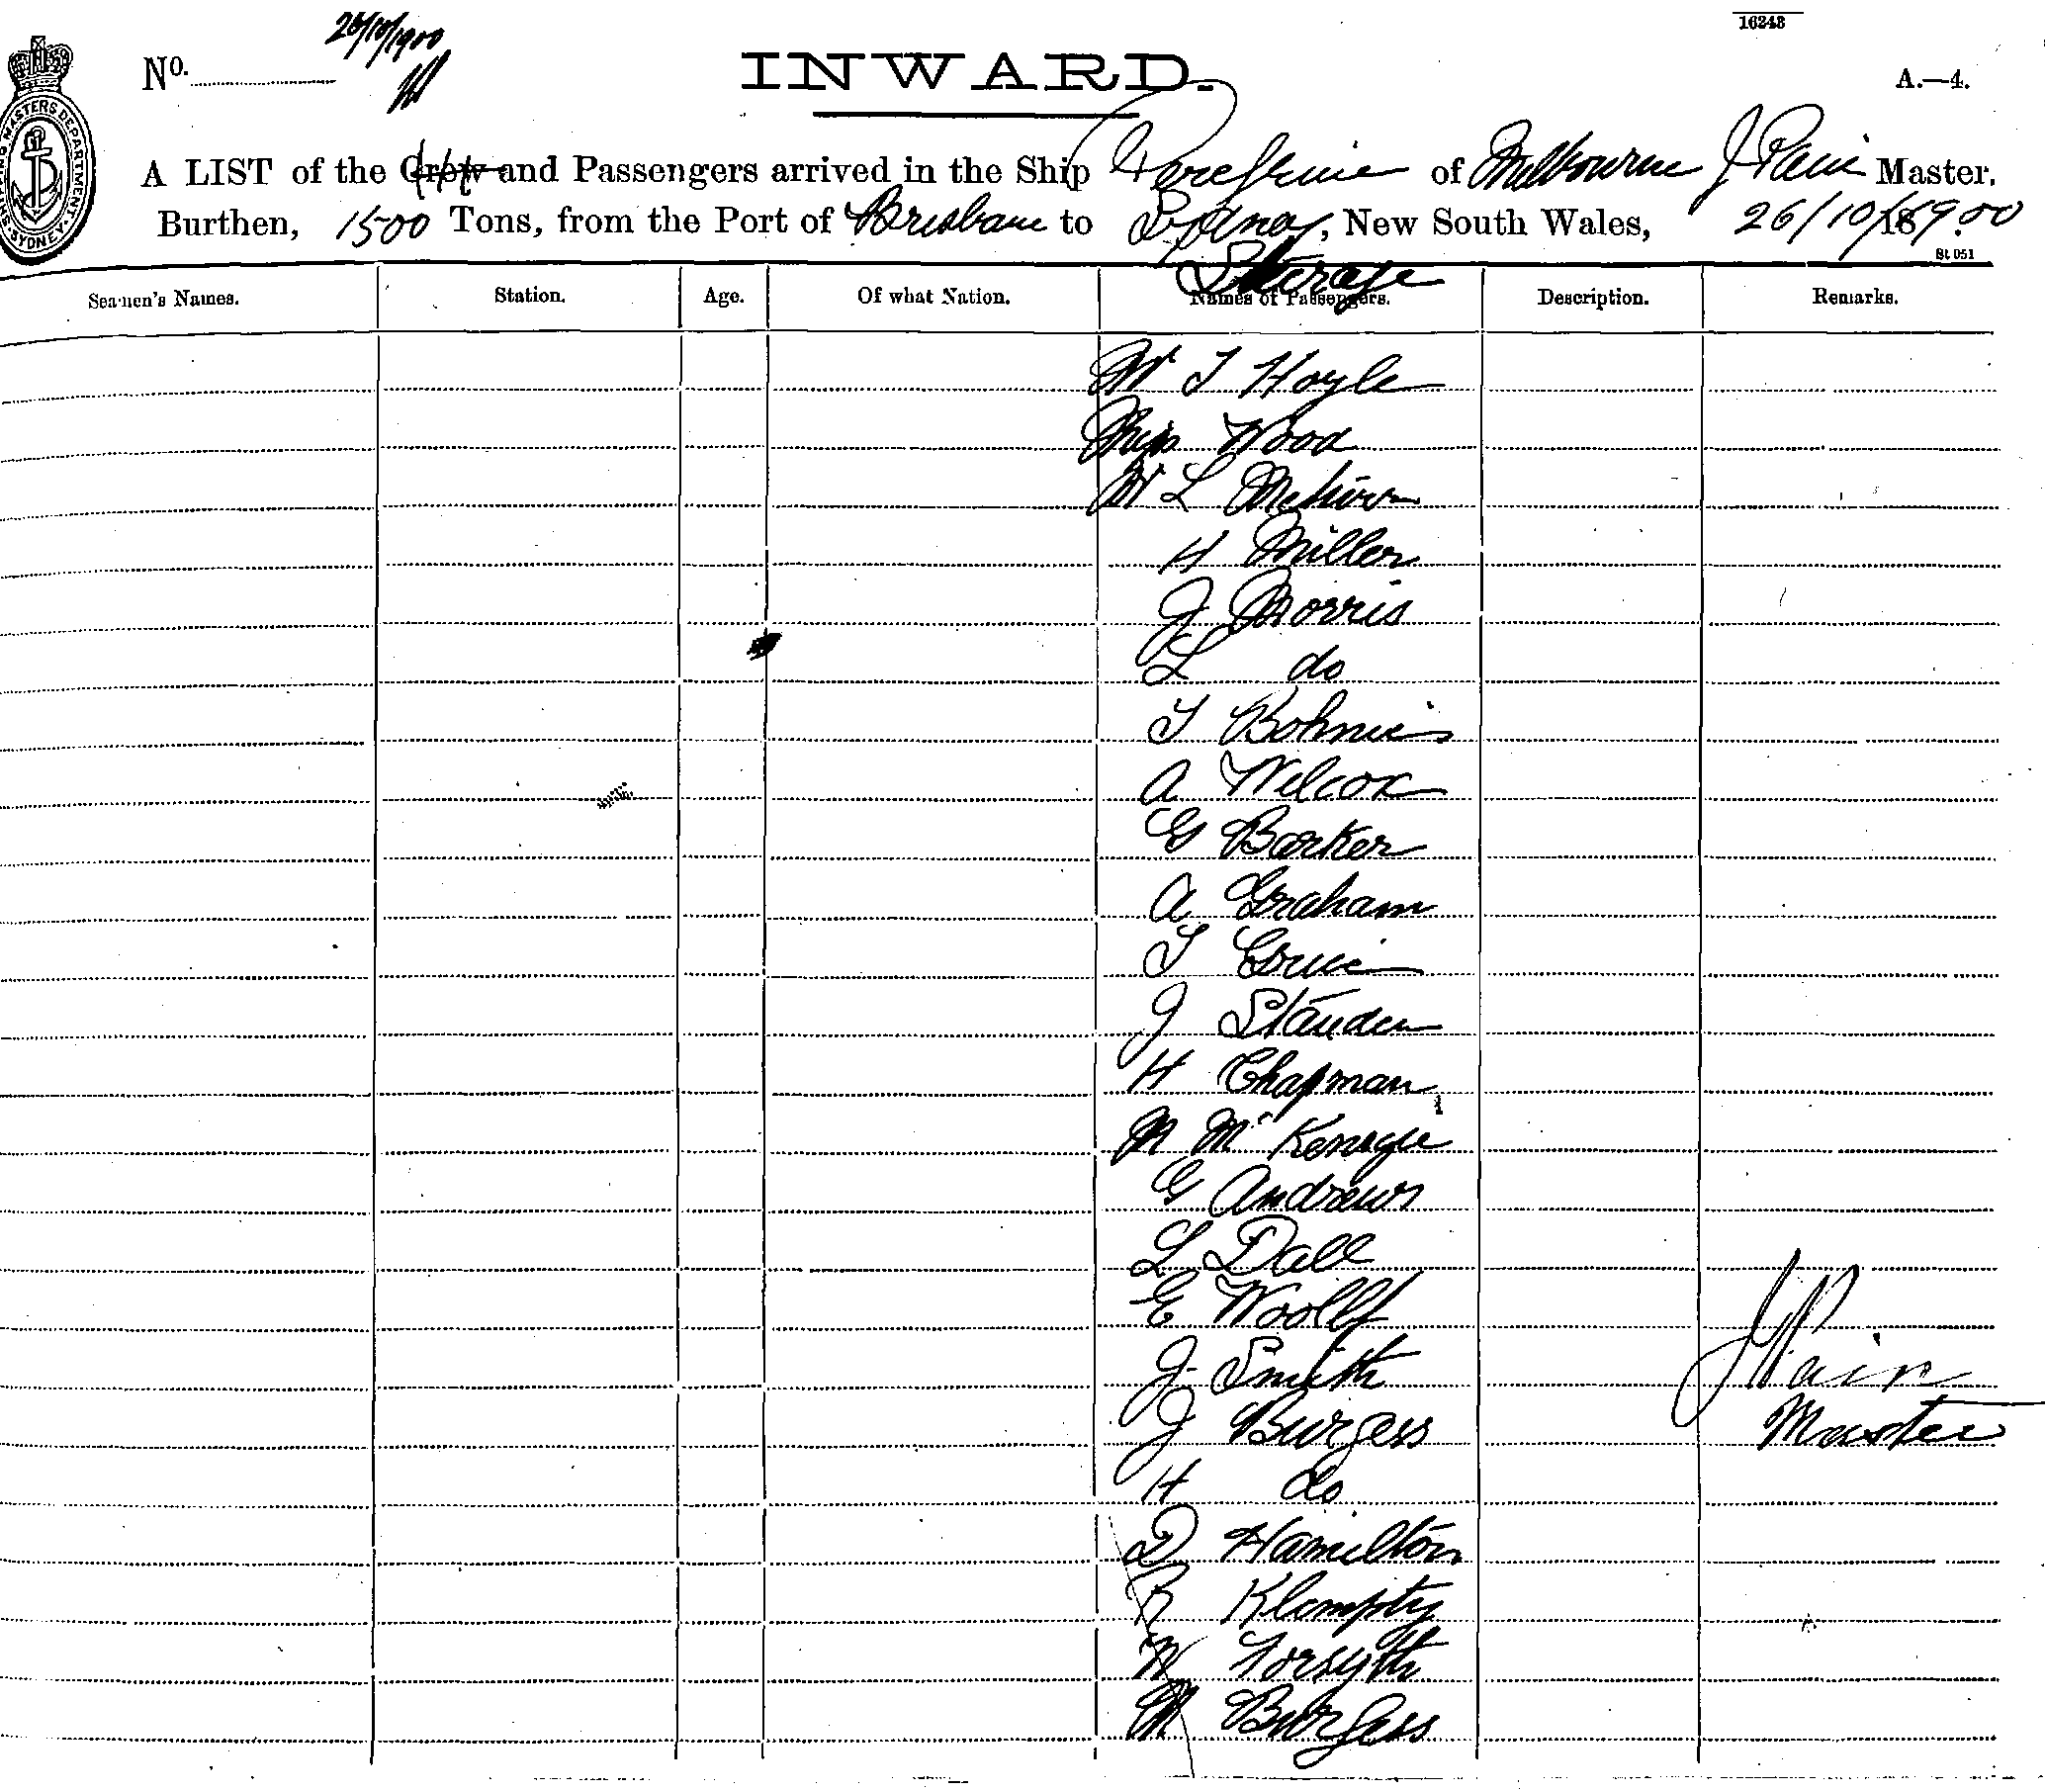 16243
26/10/1900
No.
INWARD.
A.—4.
SHIPPING MASTERS DEPARTMENT. SYDNEY
A LIST of the Crew and Passengers arrived in the Ship Peregrine of Melbourne J Pain Master,
Burthen, 1500 Tons, from the Port of Brisbane to Sydney, New South Wales, 26/10/1900
St 051
Steerage
Seamen's Names. Station. Age. Of what Nation. Names of Passengers. Description. Remarks.
T Hoyle
Wood
L
H Miller
J Morris
L do
T
A Wilcox
G Barker
A Graham
T
J Standen
H Chapman
Mc Kenzie
G Andrews
L Dall
E Woolf
J Smith
J Pain
J Burgess
Master
H do
D Hamilton
R
W Forsyth
M Burgess